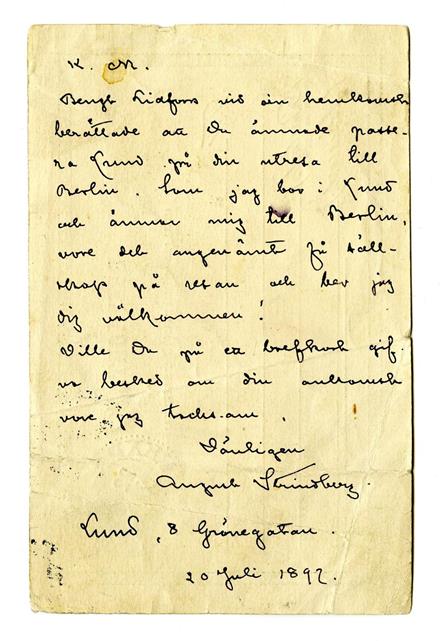 K. M.
Bengt Lidfors vid sin hemkomst
berättade att Du ämnade passe-
ra Lund på din utresa till
Berlin. Som jag bor i Lund
och ämnar mig till Berlin,
vore det angenämt få säll-
skap på resan och ber jag
dig välkommen!
Ville Du på ett brefkort gif-
va besked om din ankomst
vore jag tacksam.
Vänligen
August Strindberg.
Lund, 8 Grönegatan.
20 Juli 1897.